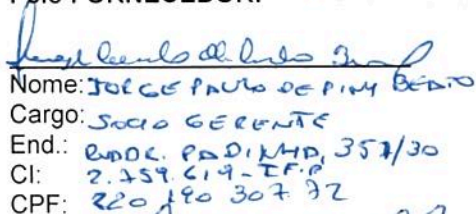 Pelo FORNECEDOR:
Nome: JORGE PAULO DE PINY BENTO
Cargo: SOCIO GERENTE
End.: PADINHA, 357/30
CI: 2.759.619-IFP
CPF: 220 190 307 72